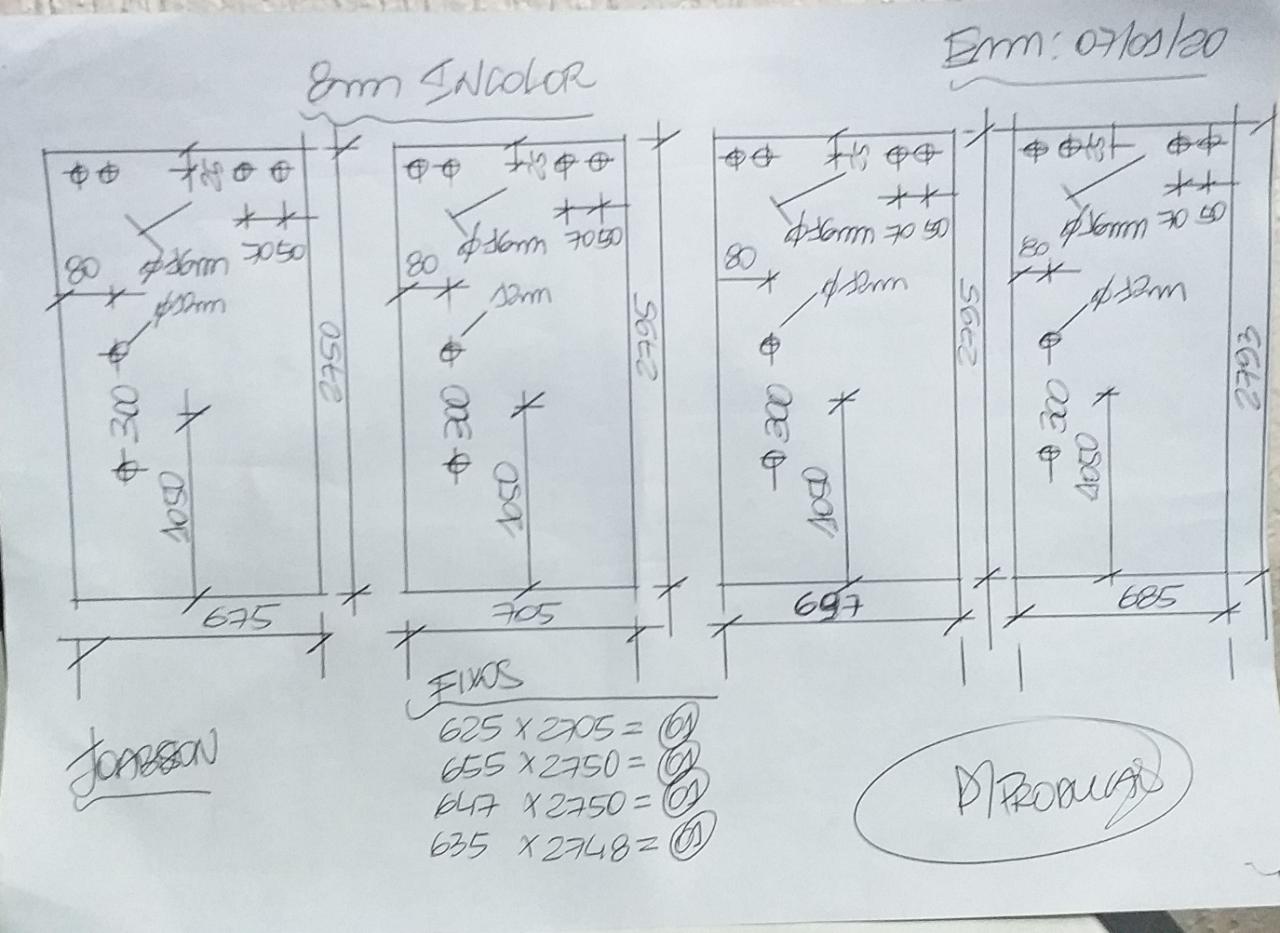 Em: 07/01/20
8mm INCOLOR
80
Ø16mm
70 50
Ø12mm
300
1050
2750
675
80
Ø16mm
70 50
12mm
300
1050
2795
705
80
Ø16mm
70 50
Ø12mm
300
1050
2795
697
80
Ø16mm
70 50
Ø12mm
300
1050
2793
685
FIXOS
625 X 2705 = 01
655 X 2750 = 01
647 X 2750 = 01
635 X 2748 = 01
JOABSON
P/PRODUCAO